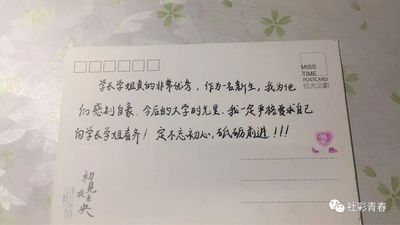 MISS
TIME
POSTCARD
拾光企劃
学长学姐真的非常优秀，作为一名新生，我为他
们感到自豪、今后的大学时光里，我一定严格要求自己
向学长学姐看齐！定不忘初心，砥砺前进！！！
初見
未央
社彩青春